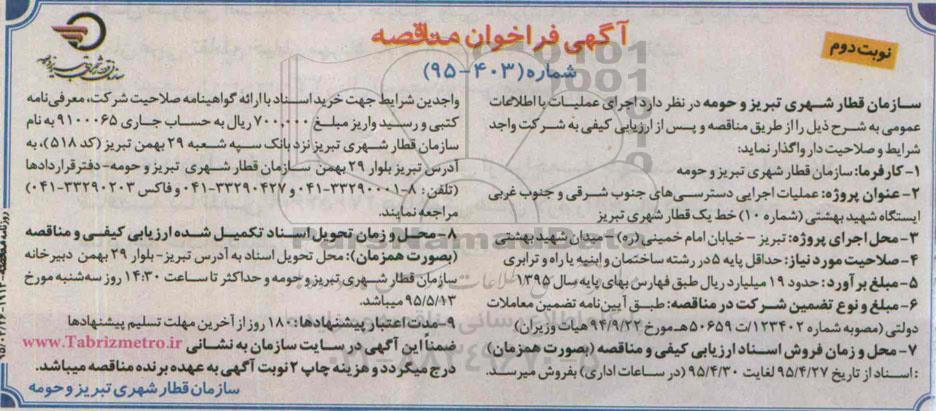 آگهی فراخوان مناقصه
شماره (۴۰۳-۹۵)
نوبت دوم
سازمان قطار شهری تبریز و حومه در نظر دارد اجرای عملیات با اطلاعات
عمومی به شرح ذیل را از طریق مناقصه و پس از ارزیابی کیفی به شرکت واجد
شرایط و صلاحیت دار واگذار نماید:
۱-کارفرما: سازمان قطار شهری تبریز و حومه
۲-عنوان پروژه: عملیات اجرایی دسترسی‌های جنوب شرقی و جنوب غربی
ایستگاه شهید بهشتی (شماره ۱۰) خط یک قطار شهری تبریز
۳-محل اجرای پروژه: تبریز - خیابان امام خمینی(ره) - میدان شهید بهشتی
۴-صلاحیت مورد نیاز: حداقل پایه ۵ در رشته ساختمان و ابنیه یا راه و ترابری
۵-مبلغ برآورد: حدود ۱۹ میلیارد ریال طبق فهارس بهای پایه سال ۱۳۹۵
۶-مبلغ و نوع تضمین شرکت در مناقصه: طبق آیین‌نامه تضمین معاملات
دولتی (مصوبه شماره ۱۲۳۴۰۲/ت ۵۰۶۵۹هـ مورخ ۹۴/۹/۲۲ هیات وزیران)
۷-محل و زمان فروش اسناد ارزیابی کیفی و مناقصه (بصورت همزمان)
: اسناد از تاریخ ۹۵/۴/۲۷ لغایت ۹۵/۴/۳۰ (در ساعات اداری) بفروش میرسد.
واجدین شرایط جهت خرید اسناد با ارائه گواهینامه صلاحیت شرکت، معرفی نامه
کتبی و رسید واریز مبلغ ۷۰۰,۰۰۰ ریال به حساب جاری ۹۱۰۰۰۶۵ به نام
سازمان قطار شهری تبریز نزد بانک سپه شعبه ۲۹ بهمن تبریز (کد ۵۱۸)، به
آدرس تبریز بلوار ۲۹ بهمن سازمان قطار شهری تبریز و حومه- دفتر قراردادها
(تلفن: ۸-۳۳۲۹۰۰۰۱-۰۴۱ و ۳۳۲۹۰۴۲۷-۰۴۱ و فاکس ۳۳۲۹۰۲۰۳-۰۴۱)
مراجعه نمایند.
۸-محل و زمان تحویل اسناد تکمیل شده ارزیابی کیفی و مناقصه
(بصورت همزمان): محل تحویل اسناد به آدرس تبریز- بلوار ۲۹ بهمن دبیرخانه
سازمان قطار شهری تبریز و حومه و حداکثر تا ساعت ۱۴:۳۰ روز سه‌شنبه مورخ
۹۵/۵/۱۳ میباشد.
۹-مدت اعتبار پیشنهادها: ۱۸۰ روز از آخرین مهلت تسلیم پیشنهادها
ضمنا این آگهی در سایت سازمان به نشانی www.Tabrizmetro.ir
درج میگردد و هزینه چاپ ۲ نوبت آگهی به عهده برنده مناقصه میباشد.
سازمان قطار شهری تبریز و حومه